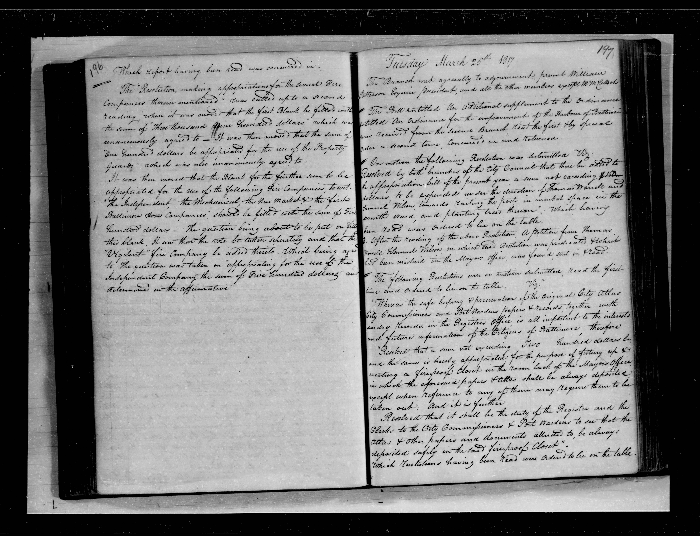 196
Which report having been read was concurred in.
The Resolution making appropriations for the several Fire
Companies therein mentioned was called up to a second
reading when it was moved that the first blank be filled with
the sum of Three thousand five hundred dollars which was
unanimously agreed to. It was then moved that the sum of
One hundred dollars be appropriated for the use of the Property
Guards which was also unanimously agreed to
It was then moved that the Blank for the further sum to be
appropriated for the use of the following Fire Companies to wit
the Independent the Mechanical the New Market & the first
Baltimore Hose Companies should be filled with the sum of Five
hundred dollars. The question being about to be put on filling
this blank, it was
Vigilant fire Company be added thereto. Which being agreed
to the question was taken on appropriating for the use of the
Independent Company the sum of Five Hundred dollars and
determined in the affirmative
197
Tuesday March 25th 1817
The Branch met agreeably to adjournment, present William
President, and all the other members except
The Bill entitled An Additional supplement to the Ordinance
entitled An Ordinance for the improvement of the Harbour of Baltimore
was received from the Second Branch read the first by special
order a second time, concurred in and returned
On motion the following Resolution was submitted Viz
Resolved by both branches of the City Council that there be added to
the appropriation list of the present year a sum not exceeding
dollars, to be expended under the direction of Thomas
towards curbing the foot in market space on the
south wood, and planting trees thereon. Which having
been read was ordered to lie on the table
After the reading of the above Resolution A petition from Thomas
on which said Resolution was predicated & which
had been mislaid in the Mayors office was found & sent in & read
The following Resolutions were on motion submitted, read the first
time and ordered to lie on the table Viz
"Whereas the safe keeping & preservation of the original City Atlas
City Commissioners and Port Wardens papers & records together with
sundry records in the Registers Office is all important to the interests
and future information of the Citizens of Baltimore, therefore
Resolved that a sum not exceeding Two hundred dollars be
and the same is hereby appropriated for the purpose of fitting up &
erecting a fireproof Closet in the room back of the Mayors Office
in which the aforesaid papers & Atlas shall be always deposited
except when reference to any of them may require them to be
taken out. And it is further
Resolved that it shall be the duty of the Register and the
Clerk to the City Commissioners & Port Wardens to see that the
Atlas & other papers and documents alluded to, be always
deposited safely in the said fireproof Closet"
Which Resolutions having been read were ordered to lie on the table.